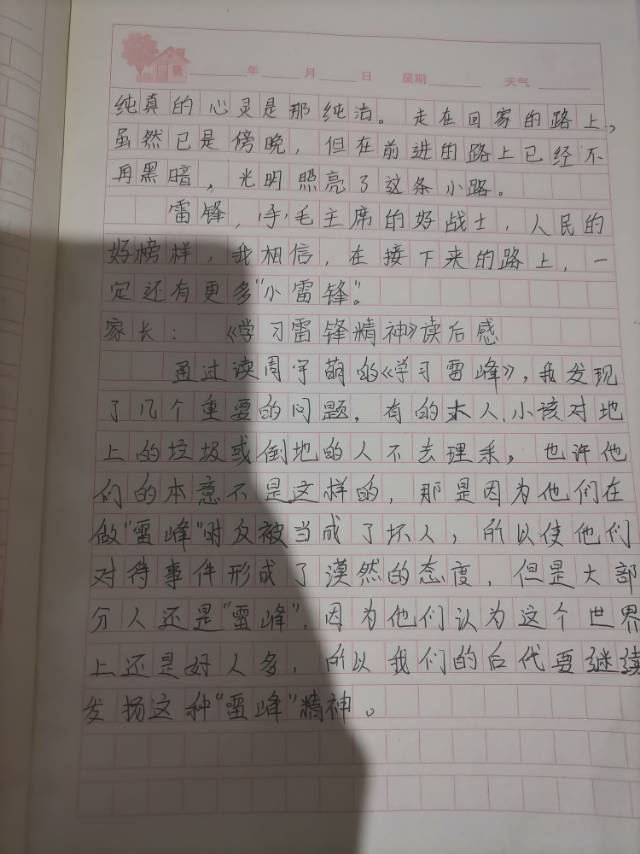 年 月 日 星期 天气
纯真的心灵是那纯洁。走在回家的路上，
虽然已是傍晚，但在前进的路上已经不
再黑暗，光明照亮了这条小路。
雷锋，毛主席的好战士，人民的
好榜样，我相信，在接下来的路上，一
定还有更多“小雷锋”。
家长：《学习雷锋精神》读后感
通过读周宇萌的《学习雷峰》，我发现
了几个重要的问题，有的大人、小孩对地
上的垃圾或倒地的人不去理采，也许他
们的本意不是这样的，那是因为他们在
做“雷峰”时反被当成了坏人，所以使他们
对待事件形成了漠然的态度，但是大部
分人还是“雷峰”，因为他们认为这个世界
上还是好人多，所以我们的后代要继续
发扬这种“雷峰”精神。